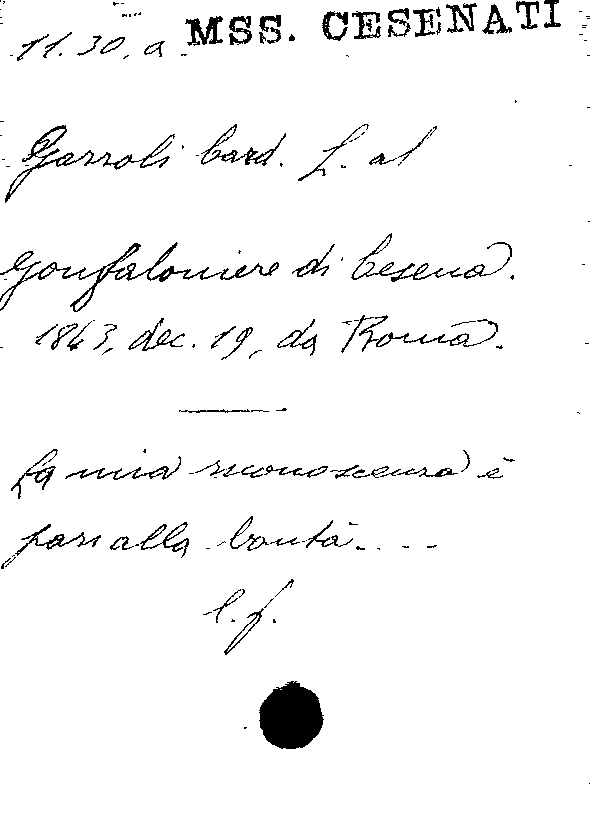 MSS. CESENATI
11.30, a.
Gazzoli Card. L. al
Gonfaloniere di Cesena.
1843, dec. 19, da Roma.
La mia riconoscenza è
pari alla bontà....
l. f.